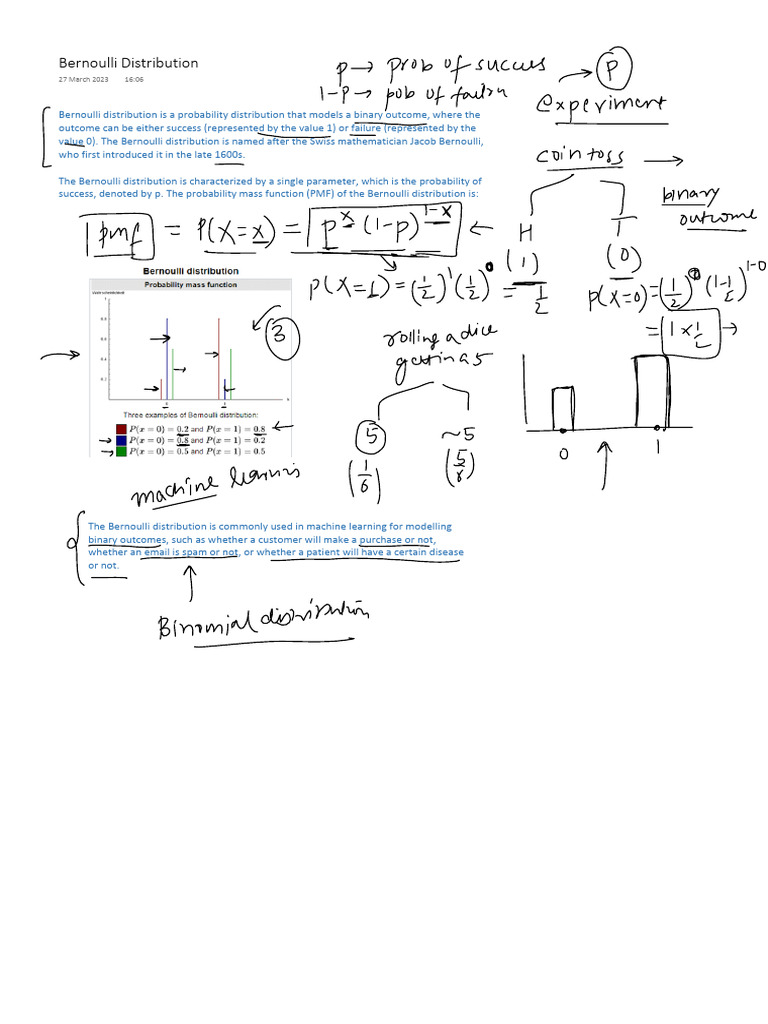 Bernoulli Distribution
27 March 2023 16:06
p → prob of success
1-p → pob of failure
p
experiment
Bernoulli distribution is a probability distribution that models a binary outcome, where the
outcome can be either success (represented by the value 1) or failure (represented by the
value 0). The Bernoulli distribution is named after the Swiss mathematician Jacob Bernoulli,
who first introduced it in the late 1600s.
The Bernoulli distribution is characterized by a single parameter, which is the probability of
success, denoted by p. The probability mass function (PMF) of the Bernoulli distribution is:
coin toss →
H T
(1) (0)
binary
outcome
pmf = P(X=x) = p^x (1-p)^(1-x) ←
P(X=1) = (1/2)^1 (1/2)^0 = 1/2
P(X=0) = (1/2)^0 (1-1/2)^(1-0)
= 1 x 1/2 →
Bernoulli distribution
Probability mass function
1
0.8
0.6
0.4
0.2
Three examples of Bernoulli distribution:
P(x = 0) = 0.2 and P(x = 1) = 0.8
P(x = 0) = 0.8 and P(x = 1) = 0.2
P(x = 0) = 0.5 and P(x = 1) = 0.5
3
rolling a dice
5 ~5
(1/6)
0 1
machine learning
The Bernoulli distribution is commonly used in machine learning for modelling
binary outcomes, such as whether a customer will make a purchase or not,
whether an email is spam or not, or whether a patient will have a certain disease
or not.
Binomial distribution